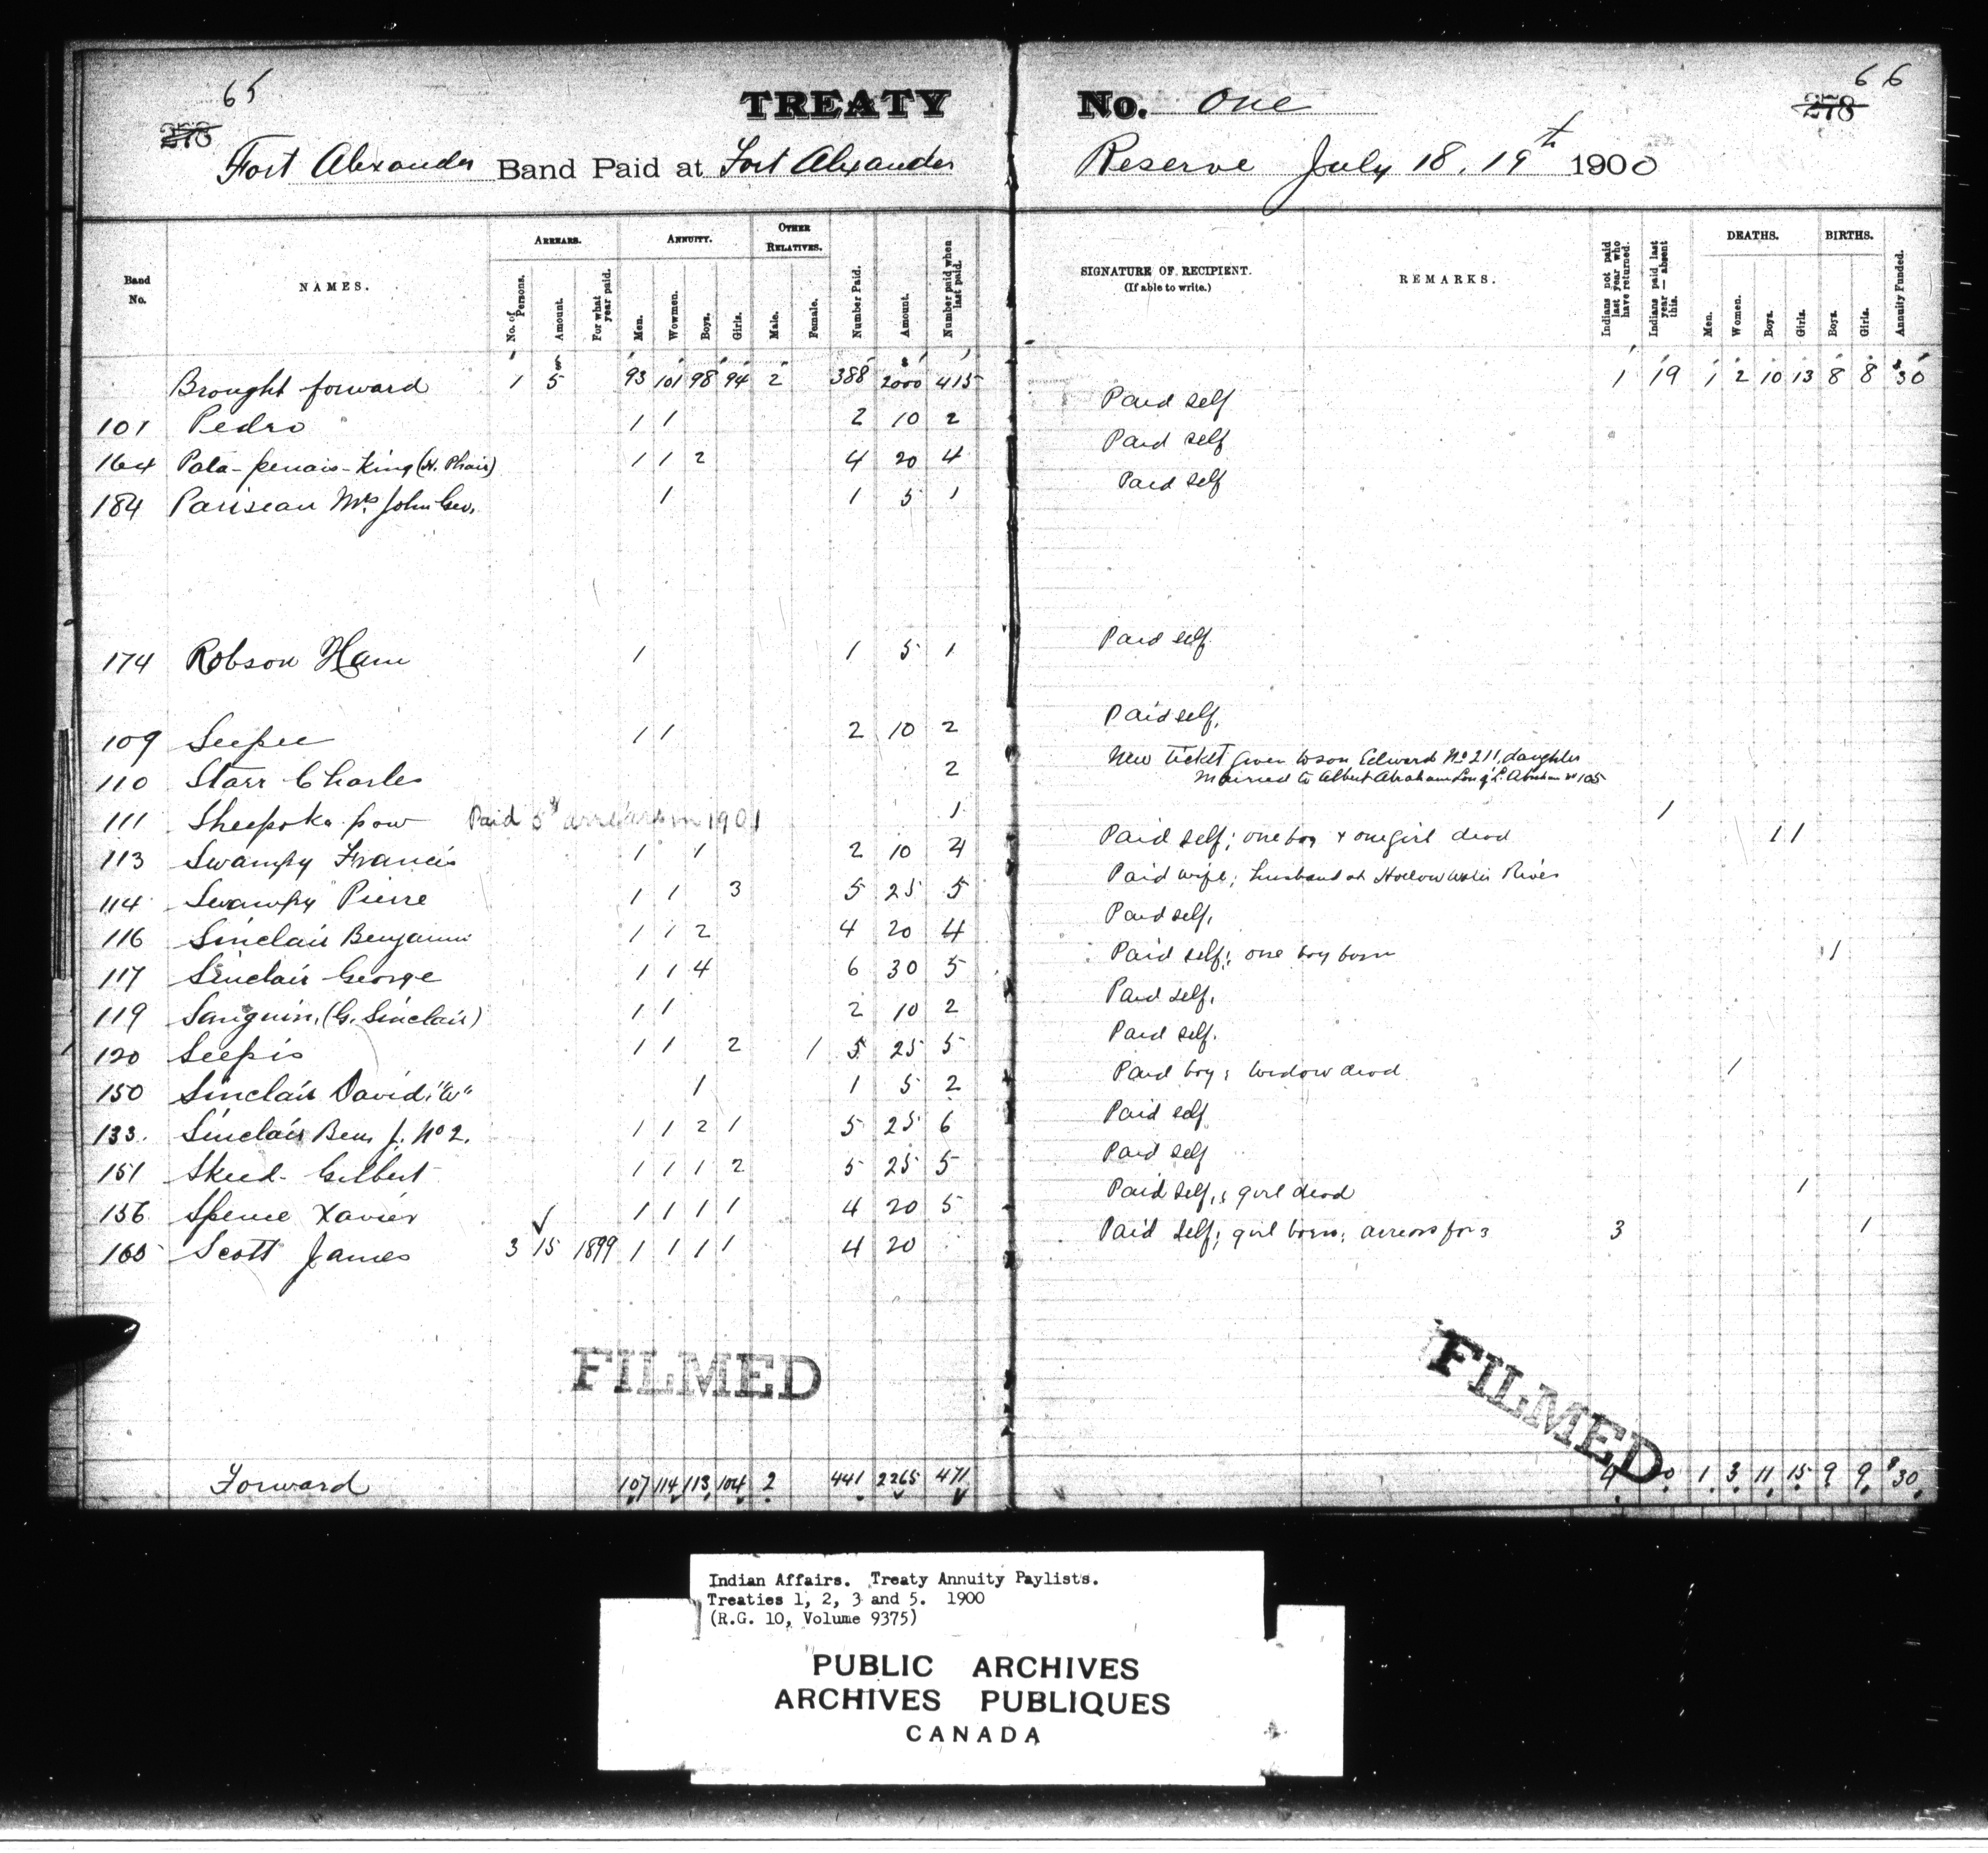 65
TREATY No. One 66
278 278
Fort Alexander Band Paid at Fort Alexander Reserve July 18. 19th 1900
Band No. NAMES. ARREARS. No. of Persons. Amount. For what year paid. ANNUITY. Men. Wowmen. Boys. Girls. OTHER RELATIVES. Male. Female. Number Paid. Amount. Number paid when last paid. SIGNATURE OF RECIPIENT. (If able to write.) REMARKS. Indians not paid last year who have returned. Indians paid last year — absent this. DEATHS. Men. Women. Boys. Girls. BIRTHS. Boys. Girls. Annuity Funded.
Brought forward 1 $5 93 101 98 94 2 388 $2000 415 1 19 1 2 10 13 8 8 $30
101 Pedro 1 1 2 10 2 Paid self
164 Pata-penais-King (H. Phair) 1 1 2 4 20 4 Paid self
184 Pariseau Mrs. John Geo. 1 1 5 1 Paid self
174 Robson Ham 1 1 5 1 Paid self
109 Seepee 1 1 2 10 2 Paid self.
110 Starr Charles 2 New ticket given to son Edward No 211, daughter
married to Albert Abraham Son of L. Abraham No 105
111 Sheepoka-pow Paid 5$ arrears in 1901 1 1
113 Swampy Francis 1 1 2 10 4 Paid self; one boy & one girl dead 1 1
114 Swampy Pierre 1 1 3 5 25 5 Paid wife; husband at Hollow water River
116 Sinclair Benjamin 1 1 2 4 20 4 Paid self.
117 Sinclair George 1 1 4 6 30 5 Paid self; one boy born 1
119 Sanguin. (G. Sinclair) 1 1 2 10 2 Paid self.
120 Seepis 1 1 2 1 5 25 5 Paid self.
150 Sinclair David "W" 1 1 5 2 Paid boy; widow dead 1
133. Sinclair Ben J. No 2. 1 1 2 1 5 25 6 Paid self
151 Skeed Gilbert 1 1 1 2 5 25 5 Paid self
156 Spence Xavier 1 1 1 1 4 20 5 Paid self, girl dead 1
165 Scott James 3 15 1899 1 1 1 1 4 20 Paid self; girl born; arrears for 3 3 1
FILMED FILMED
Forward 107 114 113 104 2 441 2265 471 4 1 3 11 15 9 9 $30
Indian Affairs. Treaty Annuity Paylists.
Treaties 1, 2, 3 and 5. 1900
(R.G. 10, Volume 9375)
PUBLIC ARCHIVES
ARCHIVES PUBLIQUES
CANADA